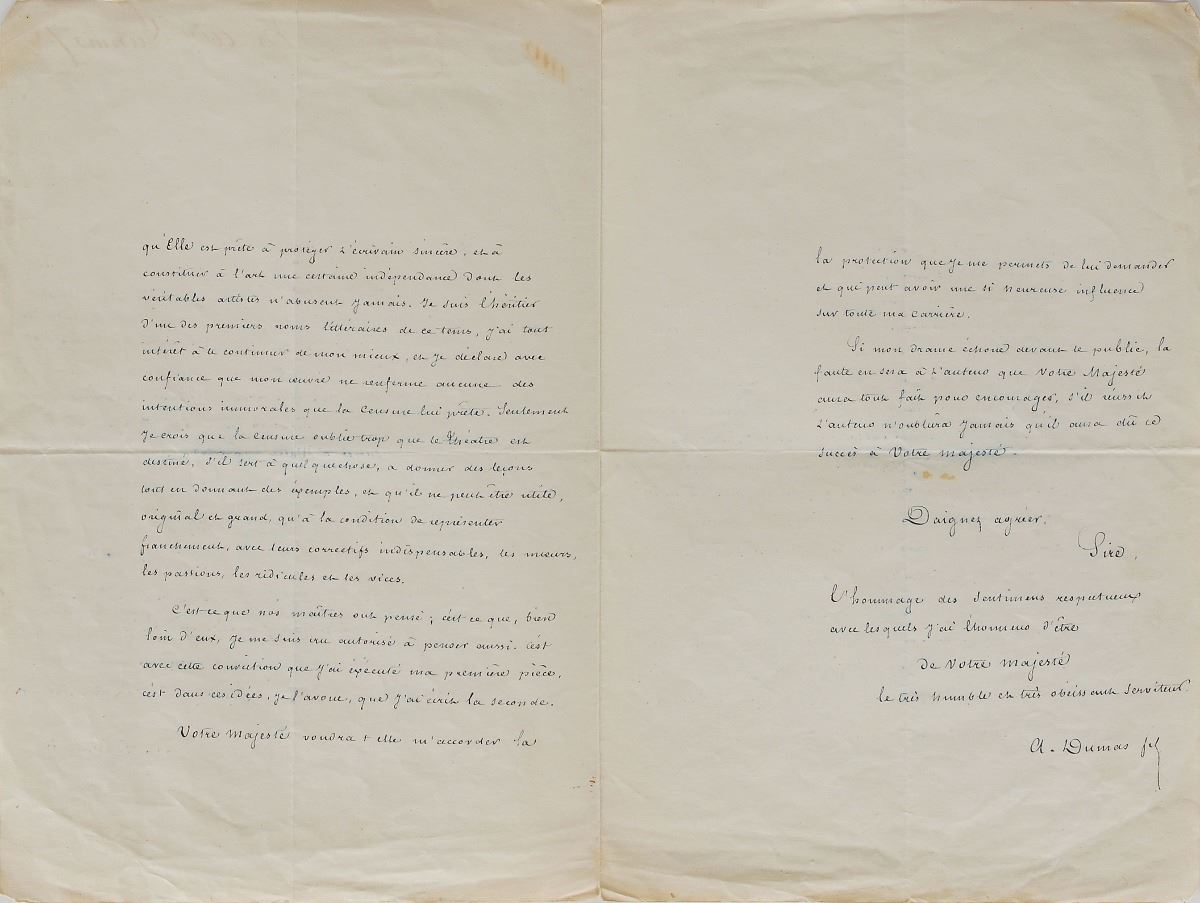 qu'Elle est prête à protéger l'écrivain sincère, et à
constituer à l'art une certaine indépendance dont les
véritables artistes n'abusent jamais. Je suis l'héritier
d'un des premiers noms littéraires de ce tems, j'ai tout
intérêt à le continuer de mon mieux, et je déclare avec
confiance que mon œuvre ne renferme aucune des
intentions immorales que la Censure lui prête. Seulement
je crois que la Censure oublie trop que le Théâtre est
destiné, s'il sert à quelque chose, a donner des leçons
tout en donnant des exemples, et qu'il ne peut être utile,
original et grand, qu'à la condition de représenter
franchement, avec leurs correctifs indispensables, les mœurs,
les passions, les ridicules et les vices.
C'est ce que nos maîtres ont pensé ; c'est ce que, bien
loin d'eux, je me suis cru autorisé à penser aussi. C'est
avec cette conviction que j'ai éxécuté ma première pièce,
c'est dans ces idées, je l'avoue, que j'ai écrit la seconde.
Votre Majesté voudra t elle m'accorder la
la protection que je me permets de lui demander
et qui peut avoir une si heureuse influence
sur toute ma carrière.
Si mon drame échoue devant le public, la
faute en sera à l'auteur que Votre Majesté
aura tout fait pour encourager, s'il réussit
l'auteur n'oublîra jamais qu'il aura dû ce
succès à Votre Majesté.
Daignez agréer,
Sire,
l'hommage des sentimens respectueux
avec lesquels j'ai l'honneur d'être
de Votre Majesté
le très humble et très obéissant serviteur.
A. Dumas fs